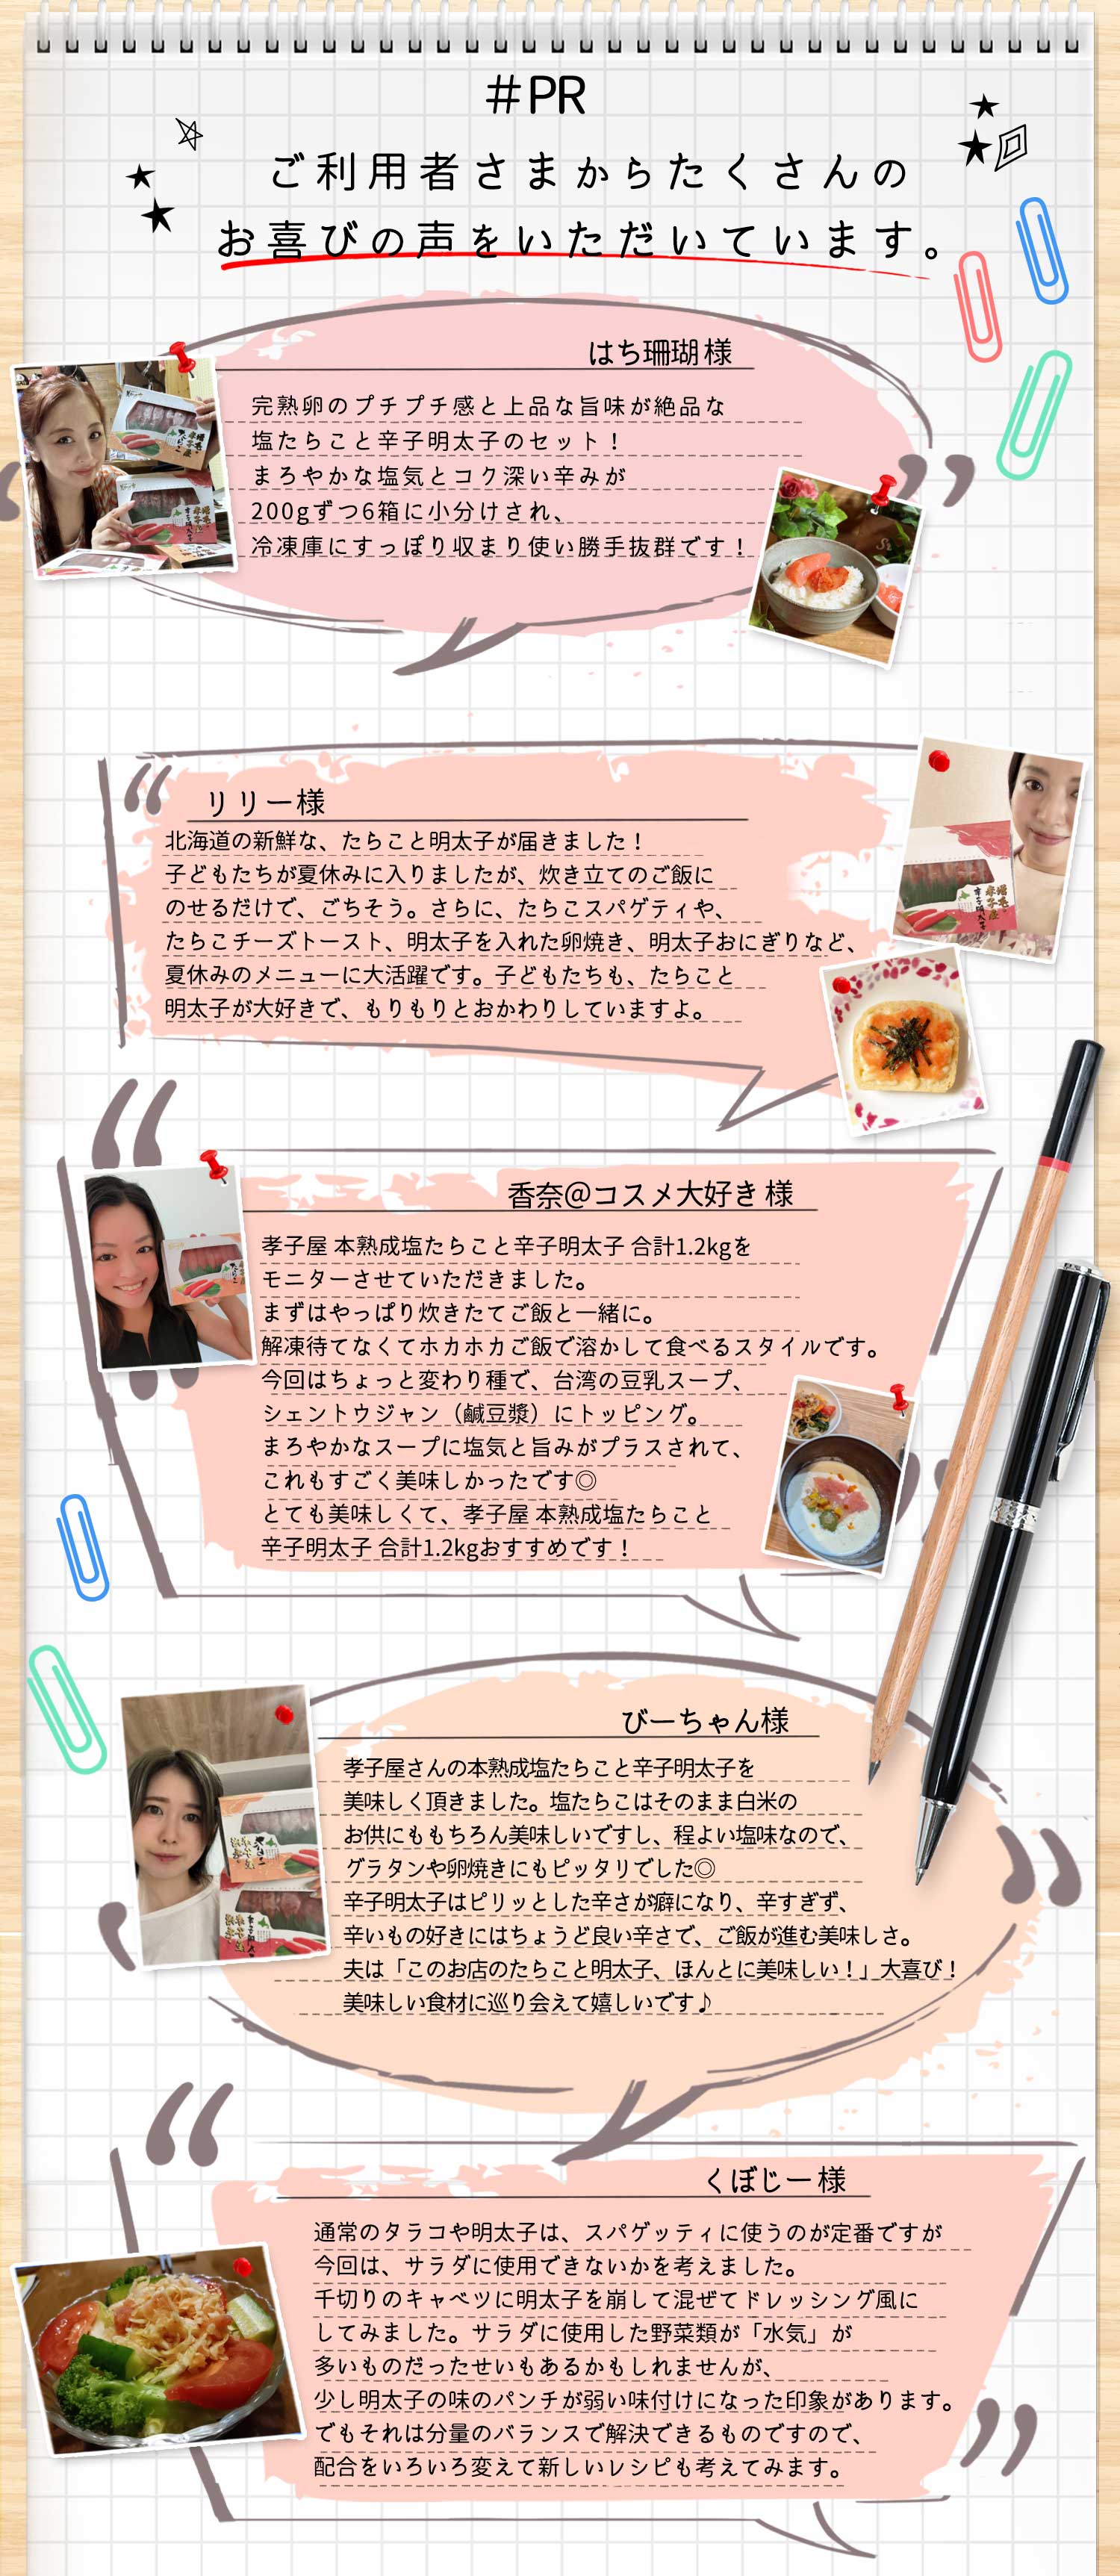 #PR
ご利用者さまからたくさんの
お喜びの声をいただいています。
はち珊瑚 様
完熟卵のプチプチ感と上品な旨味が絶品な
塩たらこと辛子明太子のセット！
まろやかな塩気とコク深い辛みが
200gずつ6箱に小分けされ、
冷凍庫にすっぽり収まり使い勝手抜群です！
リリー様
北海道の新鮮な、たらこと明太子が届きました！
子どもたちが夏休みに入りましたが、炊き立てのご飯に
のせるだけで、ごちそう。さらに、たらこスパゲティや、
たらこチーズトースト、明太子を入れた卵焼き、明太子おにぎりなど、
夏休みのメニューに大活躍です。子どもたちも、たらこと
明太子が大好きで、もりもりとおかわりしていますよ。
香奈@コスメ大好き 様
孝子屋 本熟成塩たらこと辛子明太子 合計1.2kgを
モニターさせていただきました。
まずはやっぱり炊きたてご飯と一緒に。
解凍待てなくてホカホカご飯で溶かして食べるスタイルです。
今回はちょっと変わり種で、台湾の豆乳スープ、
シェントウジャン（鹹豆漿）にトッピング。
まろやかなスープに塩気と旨みがプラスされて、
これもすごく美味しかったです◎
とても美味しくて、孝子屋 本熟成塩たらこと
辛子明太子 合計1.2kgおすすめです！
びーちゃん様
孝子屋さんの本熟成塩たらこと辛子明太子を
美味しく頂きました。塩たらこはそのまま白米の
お供にももちろん美味しいですし、程よい塩味なので、
グラタンや卵焼きにもピッタリでした◎
辛子明太子はピリッとした辛さが癖になり、辛すぎず、
辛いもの好きにはちょうど良い辛さで、ご飯が進む美味しさ。
夫は「このお店のたらこと明太子、ほんとに美味しい！」大喜び！
美味しい食材に巡り会えて嬉しいです♪
くぼじー 様
通常のタラコや明太子は、スパゲッティに使うのが定番ですが
今回は、サラダに使用できないかを考えました。
千切りのキャベツに明太子を崩して混ぜてドレッシング風に
してみました。サラダに使用した野菜類が「水気」が
多いものだったせいもあるかもしれませんが、
少し明太子の味のパンチが弱い味付けになった印象があります。
でもそれは分量のバランスで解決できるものですので、
配合をいろいろ変えて新しいレシピも考えてみます。